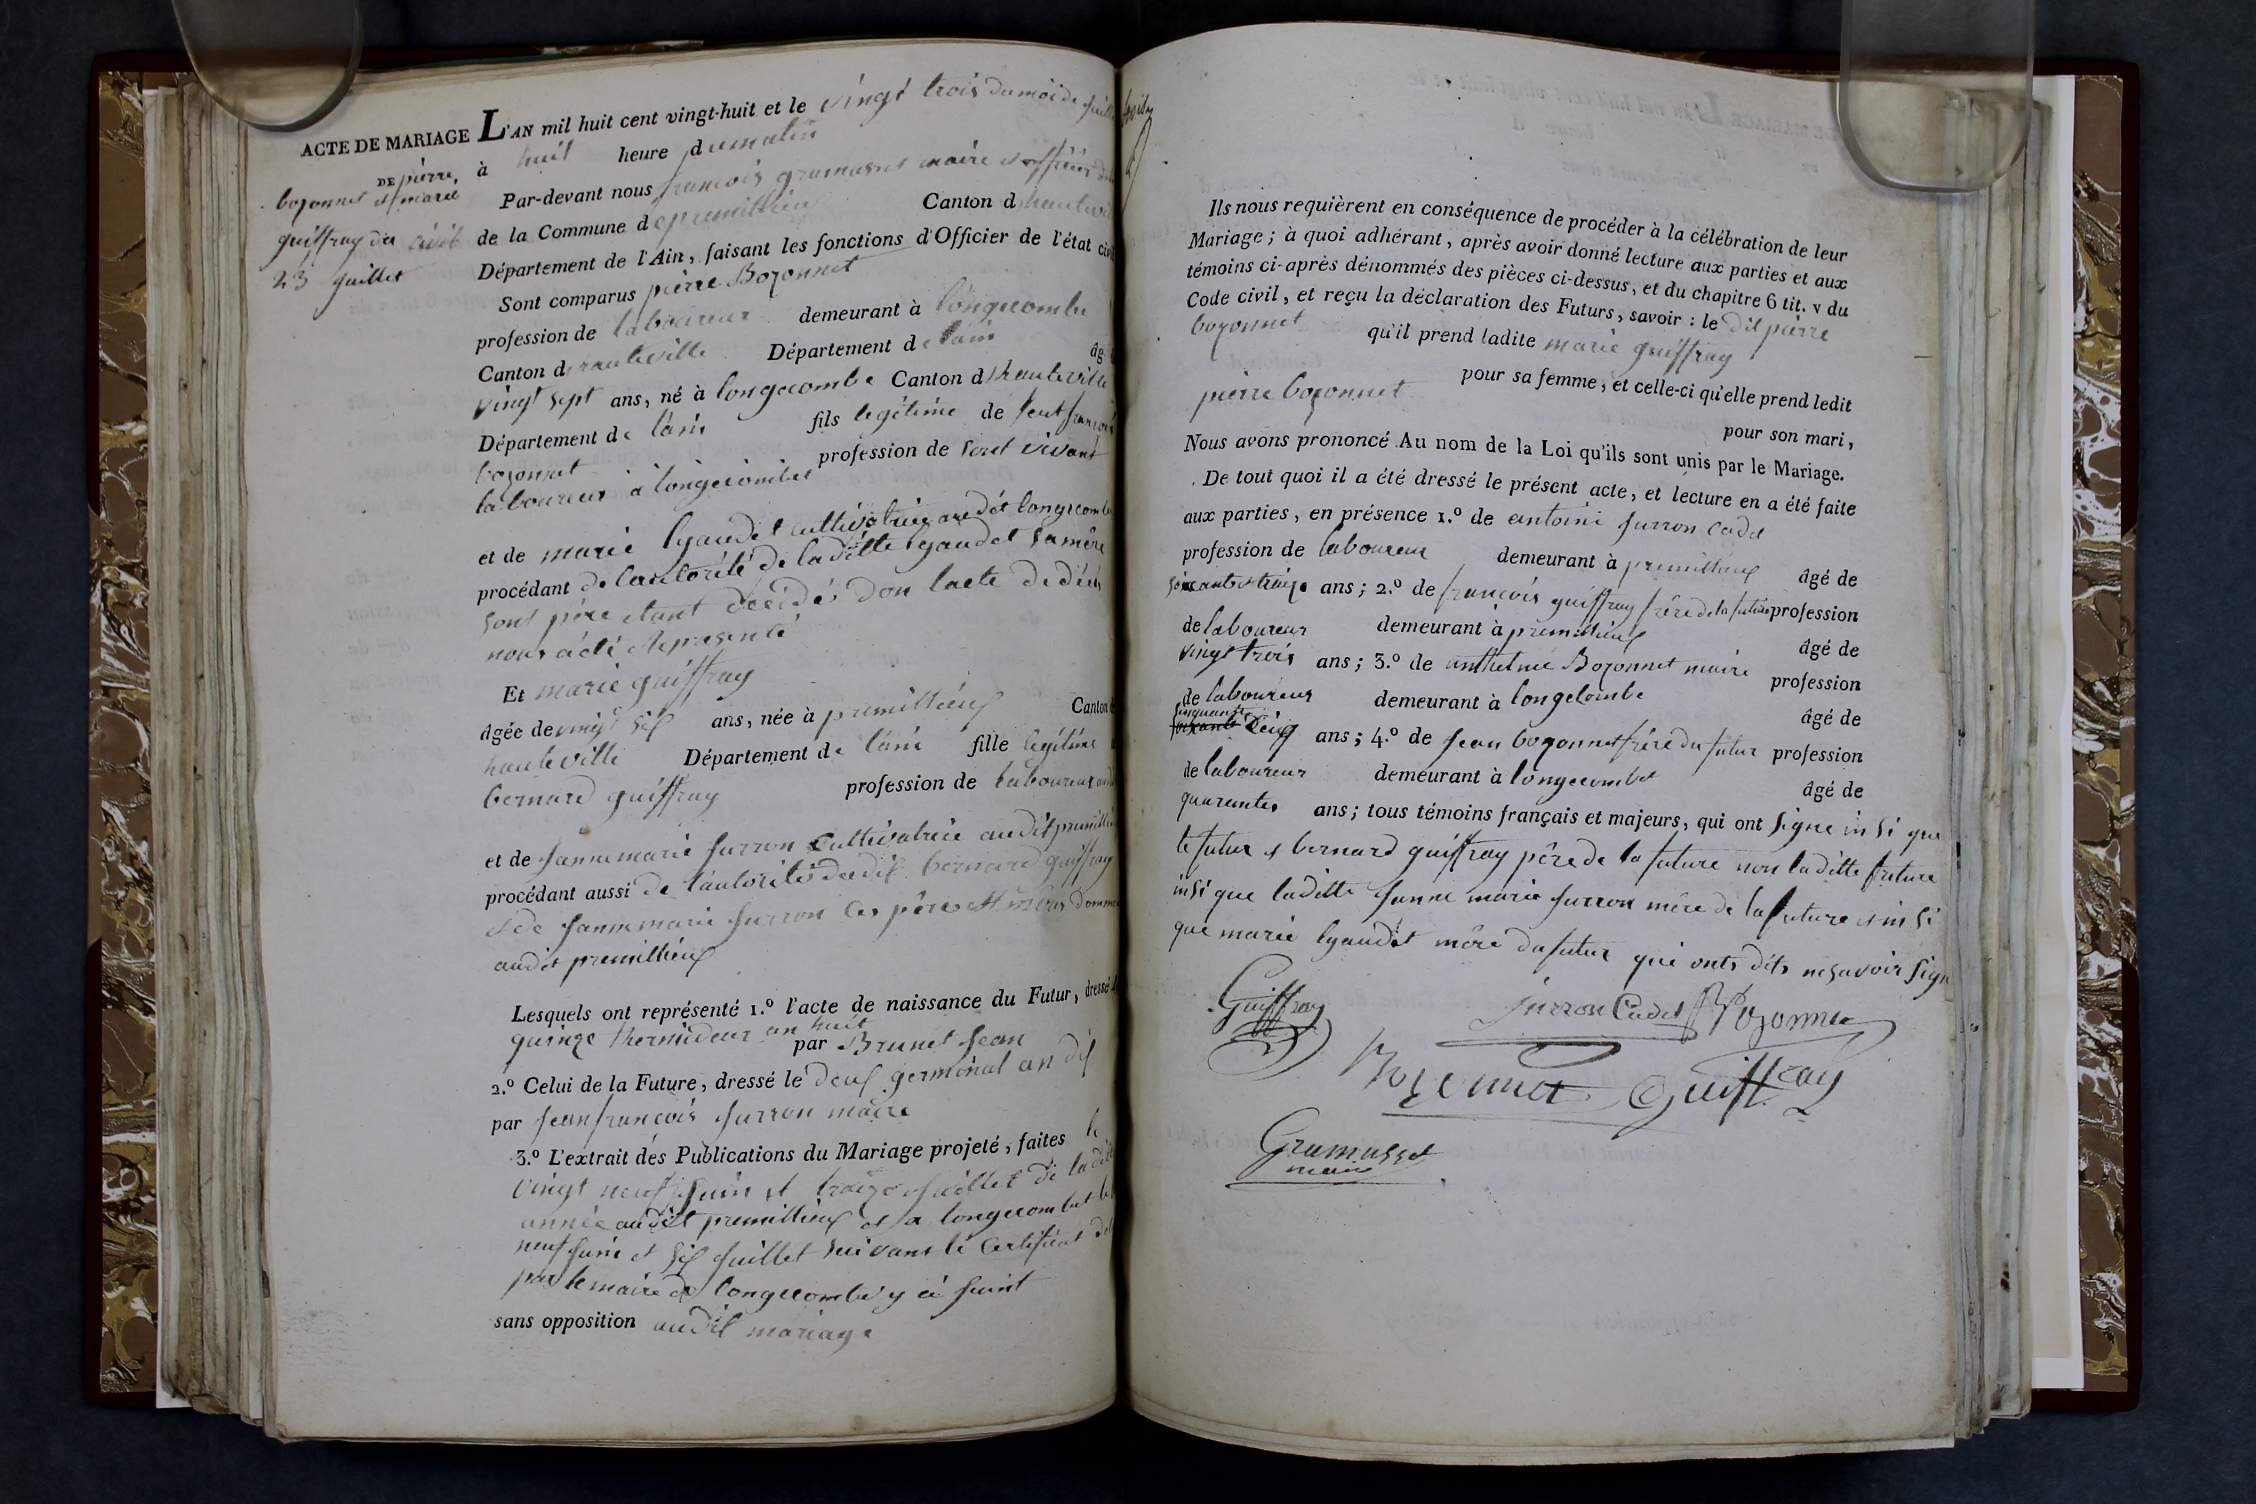 ACTE DE MARIAGE L'AN mil huit cent vingt-huit et le vingt trois du moi de juillet
DE pierre
bozonnet et marie
guiffray du civil
23 juillet
à huit heure du matin
Par-devant nous francois gramusset maire et officier
de la Commune de premillieux Canton d hauteville
Département de l'Ain, faisant les fonctions d'Officier de l'état civil
Sont comparus pierre Bozonnet
profession de laboureur demeurant à longecombe
Canton d hauteville Département de lain âgé
vingt sept ans, né à longecombe Canton d hauteville
Département de lain fils legitime de feut francois
bozonnet profession de sont vivant
laboureur à longecombet
et de marie lyaudet cultivatrice audit longecombe
procédant de lautorité de laditte lyaudet sa mère
sont père etant décédé don lacte de décès
nous a été représenté
Et marie guiffray
âgée de vingt six ans, née à premillieux Canton
hauteville Département de lain fille legitime
bernard guiffray profession de laboureur
et de jannemarie jurron cultivatrice audit premillieux
procédant aussi de lautorité dudit bernard guiffray
et de jannemarie jurron ces père et mères
audit premillieux
Lesquels ont représenté 1.º l'acte de naissance du Futur, dressé le
quinze thermideur an huit par Brunet jean
2.º Celui de la Future, dressé le deux germinal an dix
par jean francois jurron maire
3.º L'extrait des Publications du Mariage projeté, faites le
vingt neuf juin et traize juillet de laditte
année audit premillieux et a longecombet le
neuf juin et six juillet suivant le certificat
par le maire de longecombe y à joint
sans opposition audit mariage
Ils nous requièrent en conséquence de procéder à la célébration de leur
Mariage; à quoi adhérant, après avoir donné lecture aux parties et aux
témoins ci-après dénommés des pièces ci-dessus, et du chapitre 6 tit. v du
Code civil, et reçu la déclaration des Futurs, savoir : le dit pierre
bozonnet qu'il prend ladite marie guiffray
pour sa femme, et celle-ci qu'elle prend ledit
pierre bozonnet pour son mari,
Nous avons prononcé Au nom de la Loi qu'ils sont unis par le Mariage.
De tout quoi il a été dressé le présent acte, et lecture en a été faite
aux parties, en présence 1.º de antoine jurron cadet
profession de laboureur demeurant à premillieux âgé de
soixante traize ans; 2.º de francois guiffray frère de la future profession
de laboureur demeurant à premillieux âgé de
vingt trois ans; 3.º de anthelme Bozonnet maire profession
de laboureur demeurant à longecombe âgé de
cinquante
soixante deux ans; 4.º de jean bozonnet frère du futur profession
de laboureur demeurant à longecombet âgé de
quarantes ans; tous témoins français et majeurs, qui ont signe insi que
le futur et bernard guiffray père de la future non laditte future
insi que laditte janne marie jurron mère de la future et insi
que marie lyaudet mère du futur qui onts dits ne savoir signe
Guiffray jurron Cadet Bozonnet
Bozonnet Guiffray
Gramusset
maire